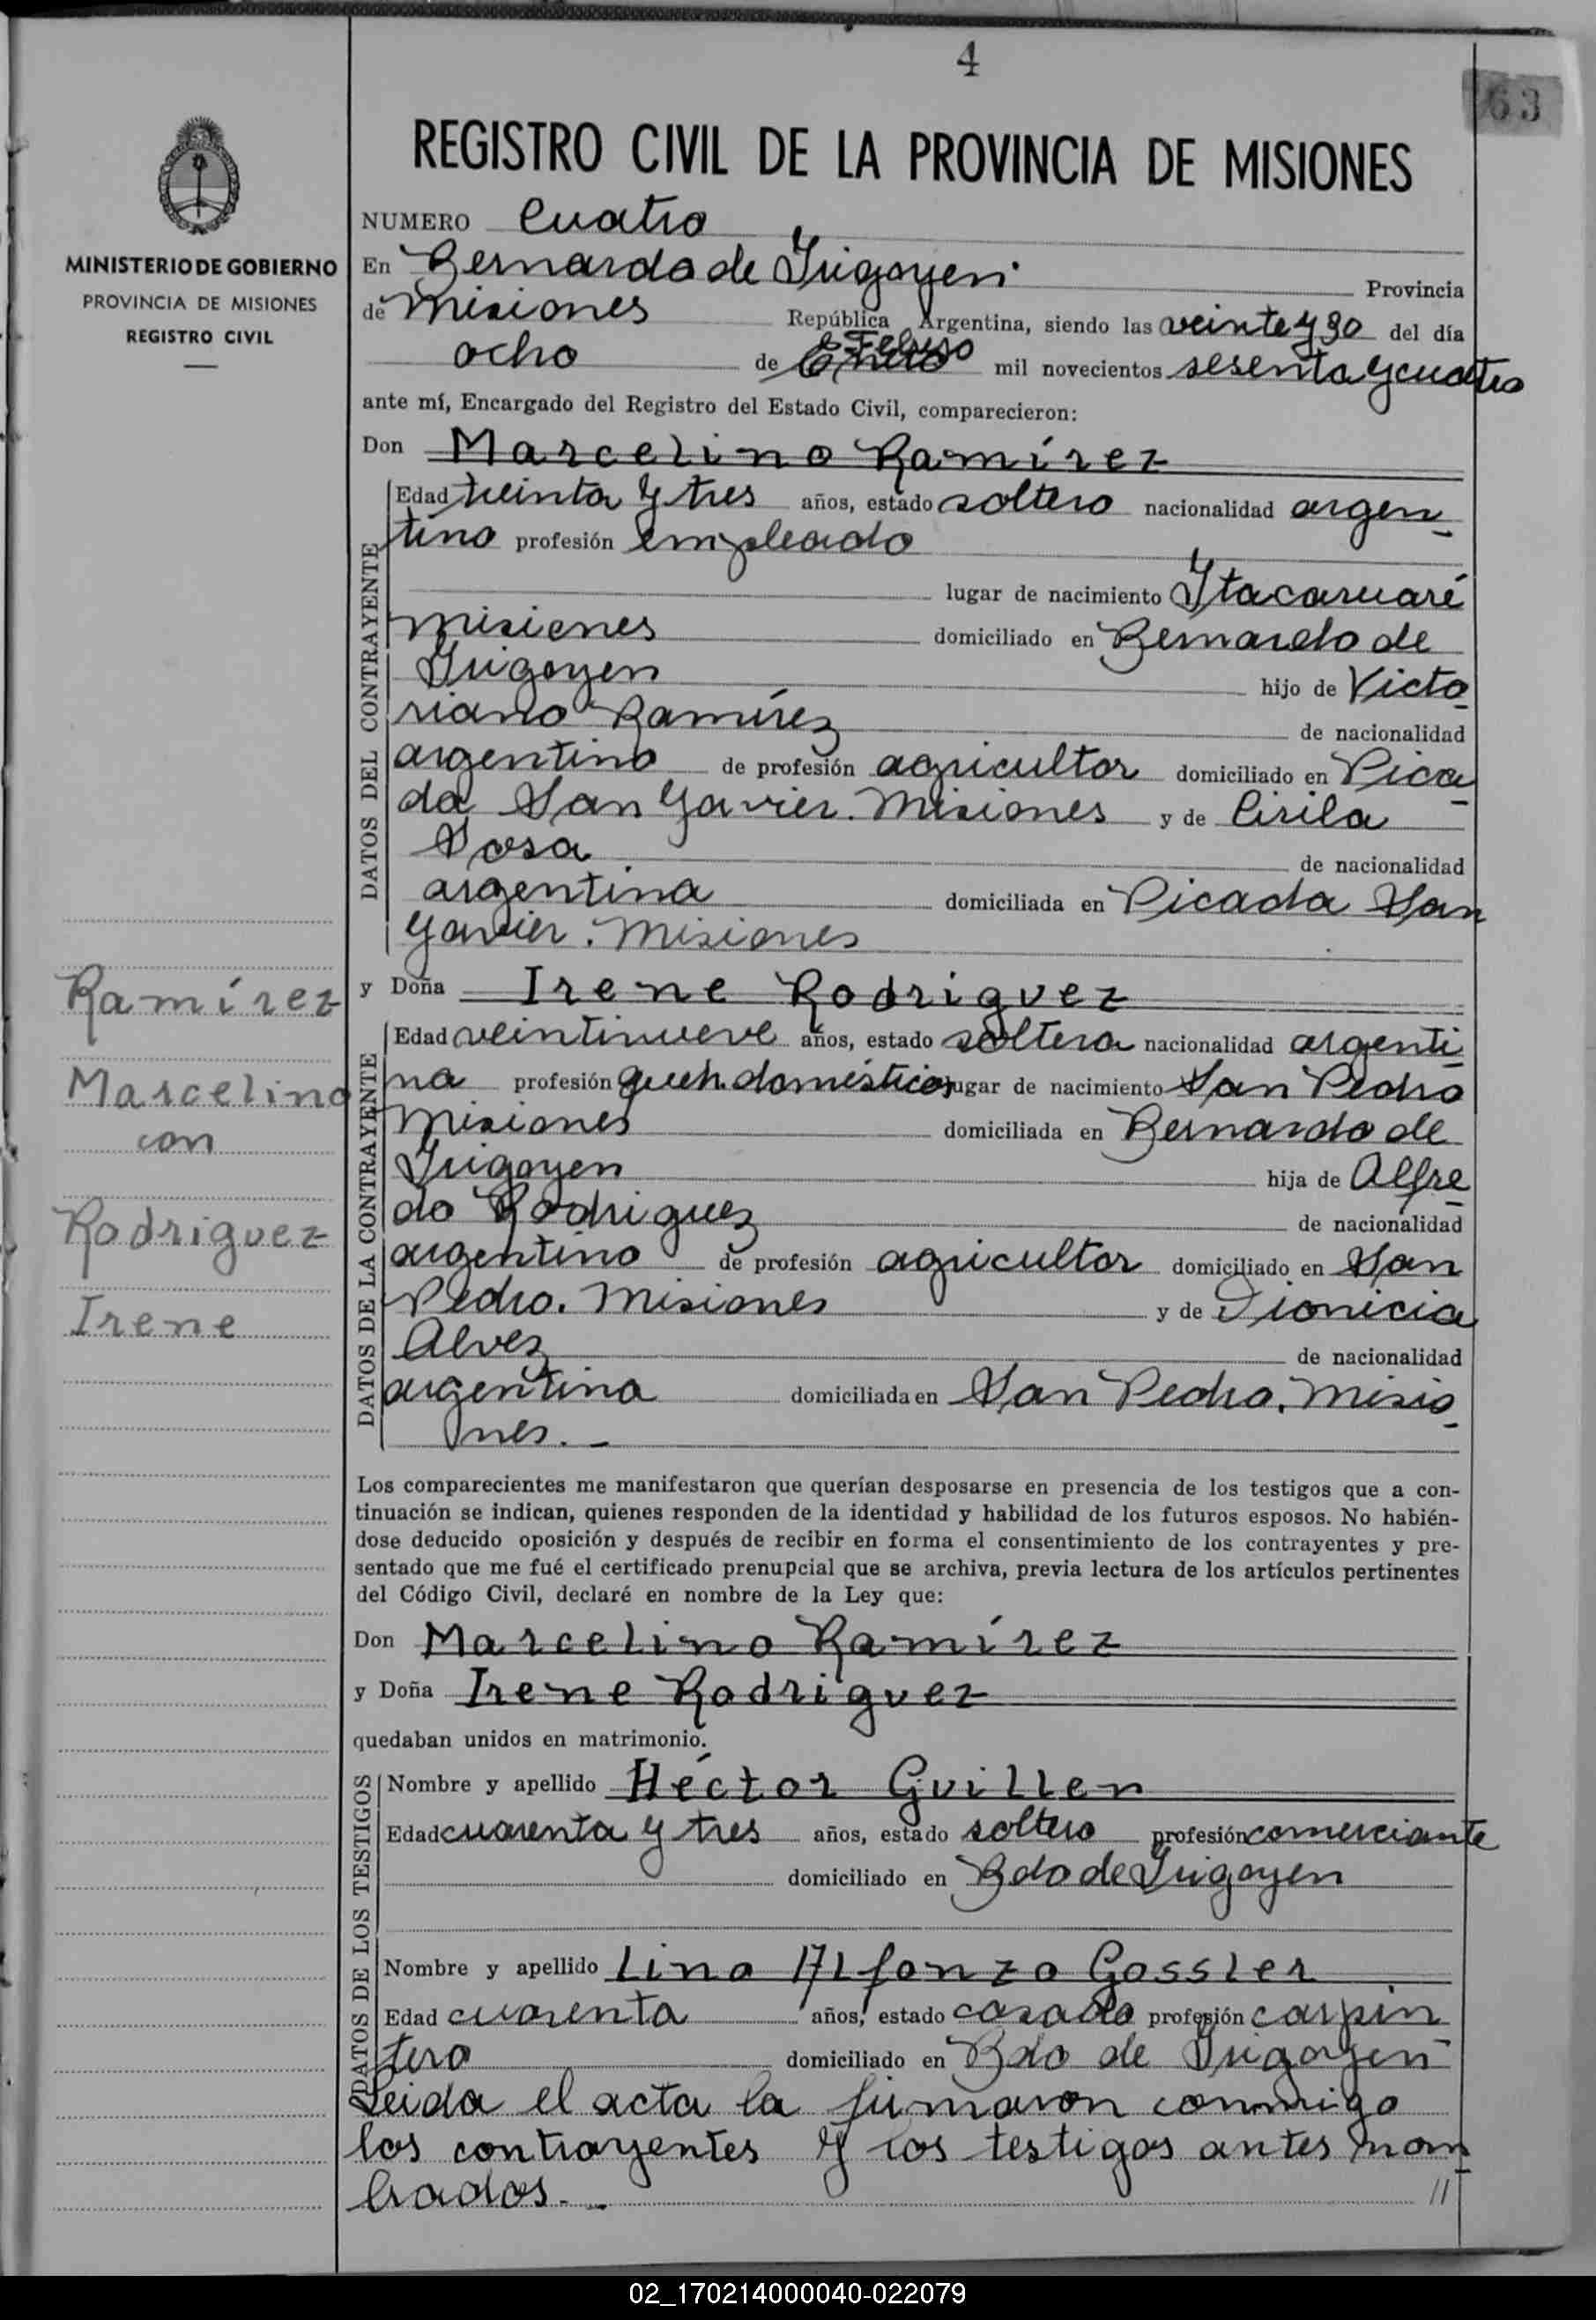 4
63
REGISTRO CIVIL DE LA PROVINCIA DE MISIONES
MINISTERIO DE GOBIERNO
PROVINCIA DE MISIONES
REGISTRO CIVIL
NUMERO Cuatro
En Bernardo de Irigoyen Provincia
de Misiones República Argentina, siendo las veinte y 30 del día
Febrero
ocho de Enero mil novecientos sesenta y cuatro
ante mí, Encargado del Registro del Estado Civil, comparecieron:
Don Marcelino Ramírez
DATOS DEL CONTRAYENTE
Edad treinta y tres años, estado soltero nacionalidad argen-
tino profesión empleado
lugar de nacimiento Itacaruaré
Misiones domiciliado en Bernardo de
Irigoyen hijo de Victo-
riano Ramírez de nacionalidad
argentino de profesión agricultor domiciliado en Pica-
da San Javier. Misiones y de Cirila
Sosa de nacionalidad
argentina domiciliada en Picada San
Javier. Misiones
y Doña Irene Rodriguez
Ramírez
Marcelino
con
Rodriguez
Irene
DATOS DE LA CONTRAYENTE
Edad veintinueve años, estado soltera nacionalidad argenti
na profesión queh. domésticos lugar de nacimiento San Pedro
Misiones domiciliada en Bernardo de
Irigoyen hija de Alfre-
do Rodriguez de nacionalidad
argentino de profesión agricultor domiciliado en San
Pedro. Misiones y de Dionicia
Alvez de nacionalidad
argentina domiciliada en San Pedro. Misio-
nes. -
Los comparecientes me manifestaron que querían desposarse en presencia de los testigos que a con-
tinuación se indican, quienes responden de la identidad y habilidad de los futuros esposos. No habién-
dose deducido oposición y después de recibir en forma el consentimiento de los contrayentes y pre-
sentado que me fué el certificado prenupcial que se archiva, previa lectura de los artículos pertinentes
del Código Civil, declaré en nombre de la Ley que:
Don Marcelino Ramírez
y Doña Irene Rodriguez
quedaban unidos en matrimonio.
DATOS DE LOS TESTIGOS
Nombre y apellido Héctor Guillen
Edad cuarenta y tres años, estado soltero profesión comerciante
domiciliado en Bdo de Irigoyen
Nombre y apellido Lino Alfonzo Gossler
Edad cuarenta años, estado casado profesión carpin
tero domiciliado en Bdo de Irigoyen
Leida el acta la firmaron conmigo
los contrayentes y los testigos antes nom-
brados. - //
02_170214000040-022079